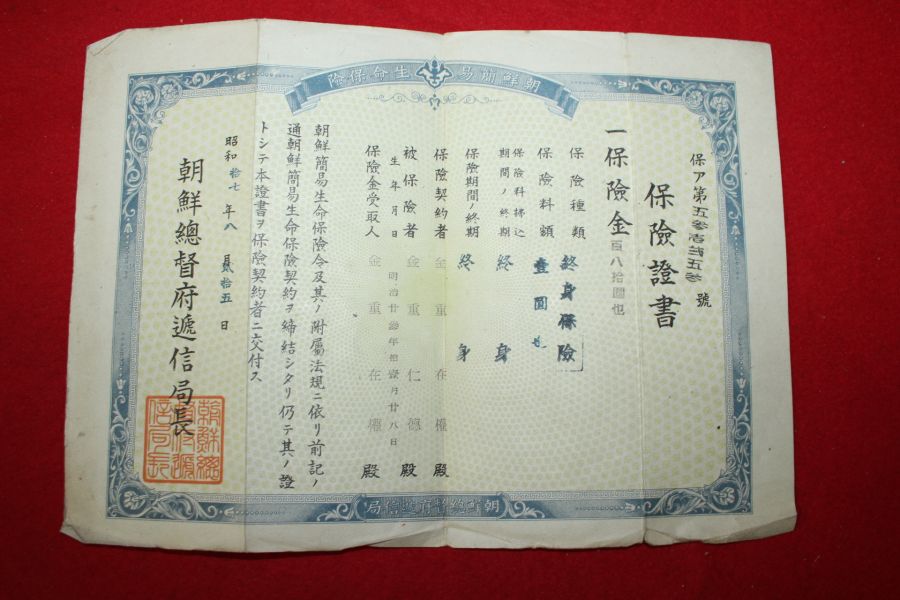 朝鮮簡易生命保險
保ア第五參壱貳五參號
保險證書
一保險金 百八拾圓也
保險種類 終身保險
保險料額 壹圓也
保險料拂込期間ノ終期 終身
保險期間ノ終期 終身
保險契約者 金重在權殿
被保險者 金重仁德殿
生年月日 明治廿 年拾壹月廿八日
保險金受取人 金重在權殿
朝鮮簡易生命保險令及其ノ附屬法規ニ依リ前記ノ
通朝鮮簡易生命保險契約ヲ締結シタリ仍テ其ノ證
トシテ本證書ヲ保險契約者ニ交付ス
昭和拾七年八月貳拾五日
朝鮮總督府遞信局長
朝鮮總督府遞信局長
朝鮮總督府遞信局